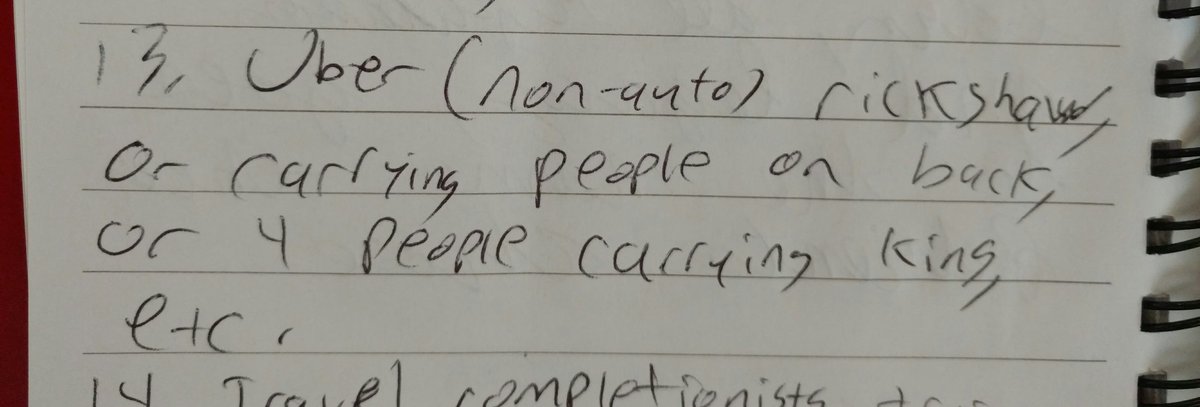 13. Uber (non-auto) rickshaw,
or carrying people on back,
or 4 people carrying king,
etc.
14 Travel completionists